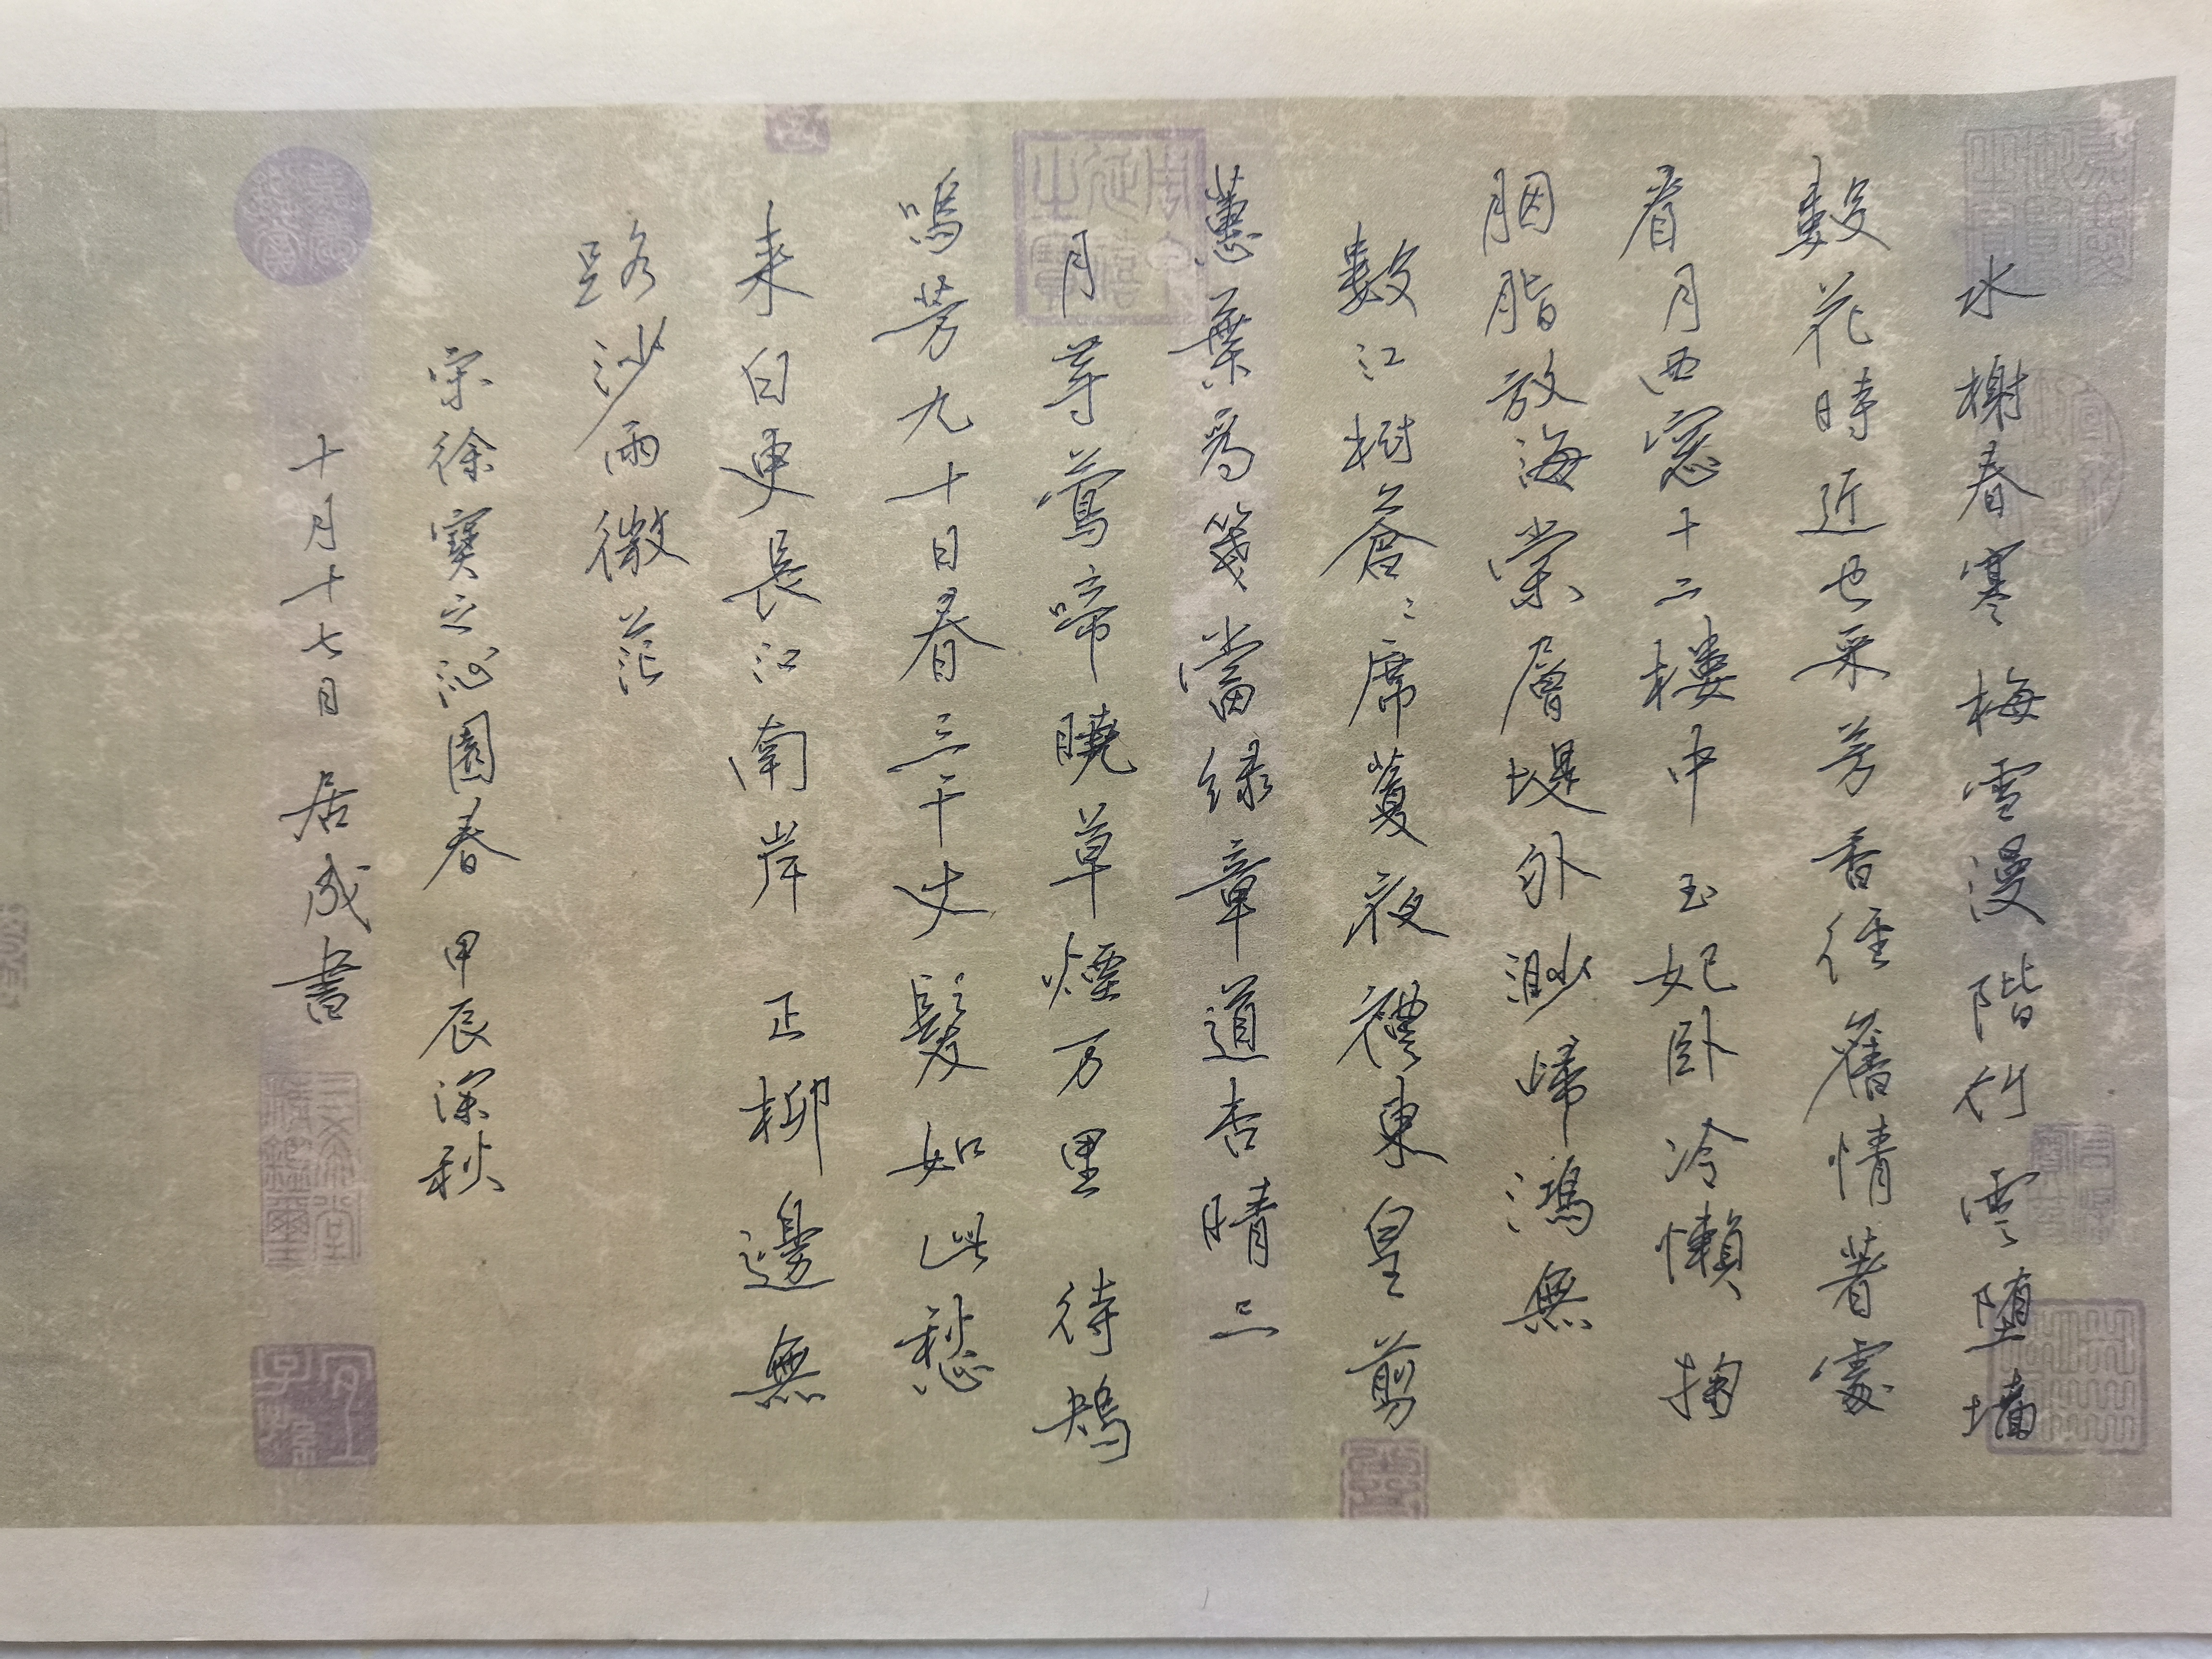 水榭春寒梅雪漫階竹雲墮墻
數花時近也采芳香徑舊情著處
看月西窓十二樓中玉妃卧冷懶掬
胭脂放海棠層堤外渺歸鴻無
數江樹蒼〻席蔓夜禮東皇剪
蕙葉為箋當緑章道杏晴三
月等鶯啼曉草煙万里待鴂
鳴芳九十日春三千丈髮如此愁
来白更長江南岸正柳邊無
路沙雨微茫
宋徐寶之沁園春 甲辰深秋
十月十七日居成書